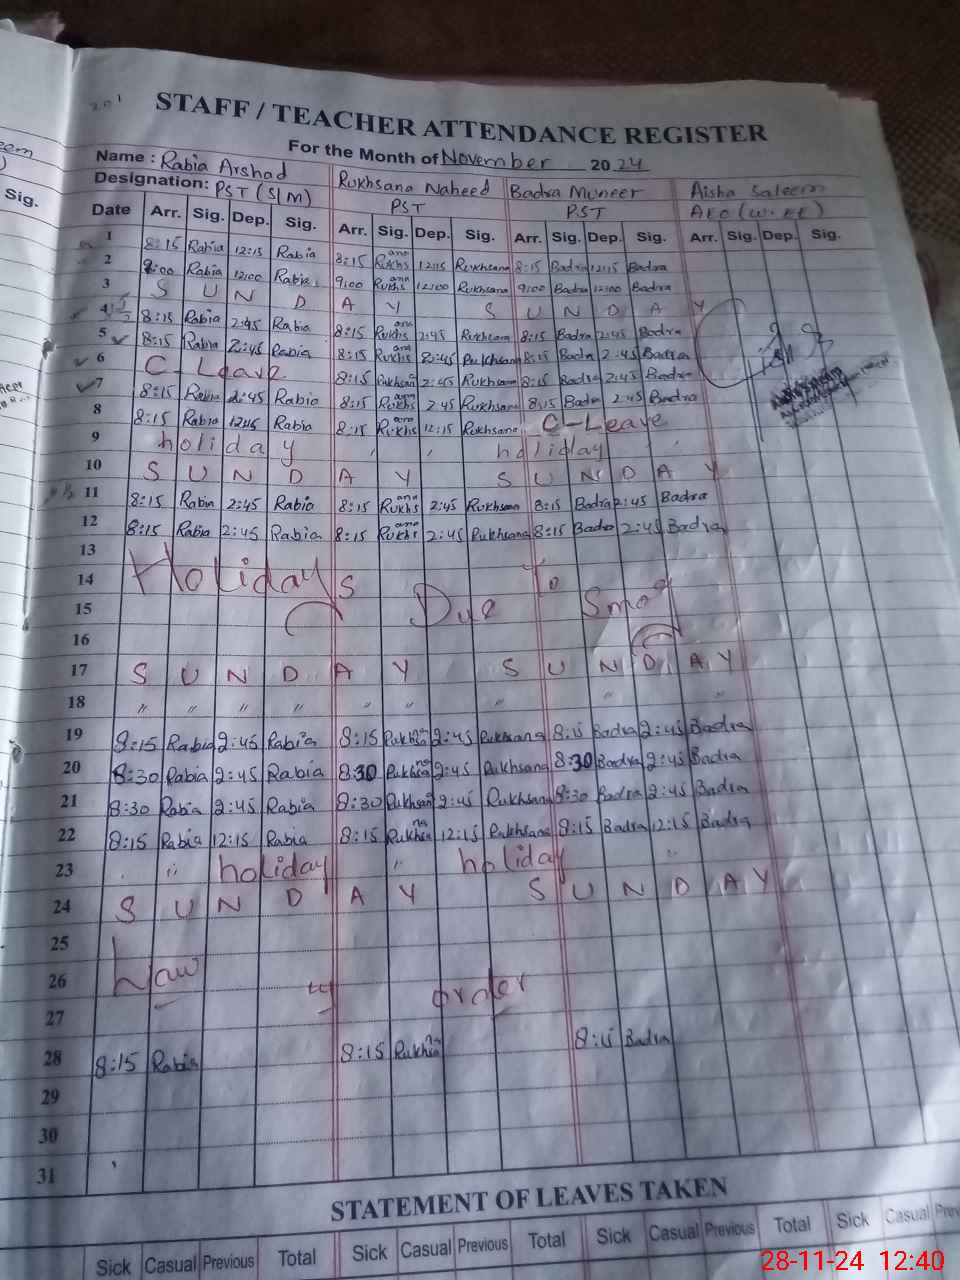 201
STAFF / TEACHER ATTENDANCE REGISTER
For the Month of November 2024
Name : Rabia Arshad Rukhsana Naheed Badra Muneer Aisha Saleem
Designation: PST (S/M) PST PST AEO (W.EE)
Sig.
Date Arr. Sig. Dep. Sig. Arr. Sig. Dep. Sig. Arr. Sig. Dep. Sig. Arr. Sig. Dep. Sig.
1 8:15 Rabia 12:15 Rabia 8:15 Rukhsana 12:15 Rukhsana 8:15 Badra 12:15 Badra
2 9:00 Rabia 12:00 Rabia 9:00 Rukhsana 12:00 Rukhsana 9:00 Badra 12:00 Badra
3 S U N D A Y S U N D A Y
4 8:15 Rabia 2:45 Rabia 8:15 Rukhsana 2:45 Rukhsana 8:15 Badra 2:45 Badra
5 8:15 Rabia 2:45 Rabia 8:15 Rukhsana 2:45 Rukhsana 8:15 Badra 2:45 Badra
6 C-Leave 8:15 Rukhsana 2:45 Rukhsana 8:15 Badra 2:45 Badra
7 8:15 Rabia 2:45 Rabia 8:15 Rukhsana 2:45 Rukhsana 8:15 Badra 2:45 Badra
8 8:15 Rabia 12:15 Rabia 8:15 Rukhsana 12:15 Rukhsana C-Leave
9 holiday " " holiday "
10 S U N D A Y S U N D A Y
11 8:15 Rabia 2:45 Rabia 8:15 Rukhsana 2:45 Rukhsana 8:15 Badra 2:45 Badra
12 8:15 Rabia 2:45 Rabia 8:15 Rukhsana 2:45 Rukhsana 8:15 Badra 2:45 Badra
13
14 Holidays Due To Smog
15
16
17 S U N D A Y S U N D A Y
18 " " " " " " " " "
19 8:15 Rabia 2:45 Rabia 8:15 Rukhsana 2:45 Rukhsana 8:15 Badra 2:45 Badra
20 8:30 Rabia 2:45 Rabia 8:30 Rukhsana 2:45 Rukhsana 8:30 Badra 2:45 Badra
21 8:30 Rabia 2:45 Rabia 8:30 Rukhsana 2:45 Rukhsana 8:30 Badra 2:45 Badra
22 8:15 Rabia 12:15 Rabia 8:15 Rukhsana 12:15 Rukhsana 8:15 Badra 12:15 Badra
23 " holiday " holiday "
24 S U N D A Y S U N D A Y
25
26 Law order
27
28 8:15 Rabia 8:15 Rukhsana 8:15 Badra
29
30
31
STATEMENT OF LEAVES TAKEN
Sick Casual Previous Total Sick Casual Previous Total Sick Casual Previous Total Sick Casual
28-11-24 12:40